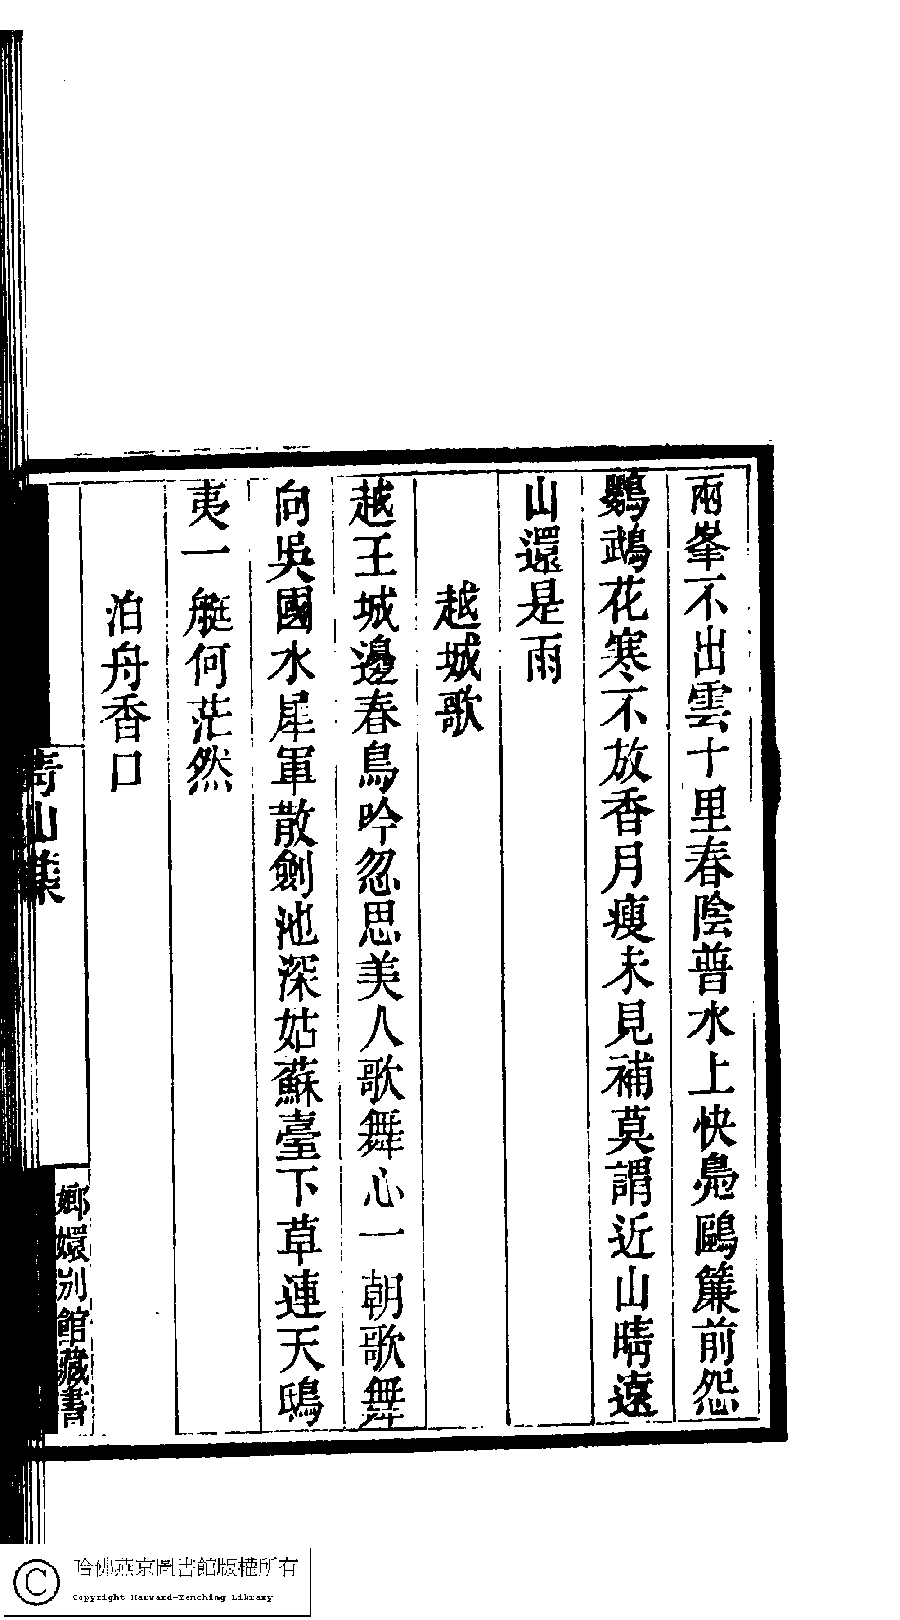 兩峯不出雲十里春陰普水上快鳧鷗簾前怨
鸚鵡花寒不放香月瘦未見補莫謂近山晴遠
山還是雨
越城歌
越王城邊春鳥吟忽思美人歌舞心一朝歌舞
向吳國水犀軍散劍池深姑蘇臺下草連天鴟
夷一艇何茫然
泊舟香口
青山集
嫏嬛別館藏書
哈佛燕京圖書館版權所有
Copyright Harvard-Yenching Library